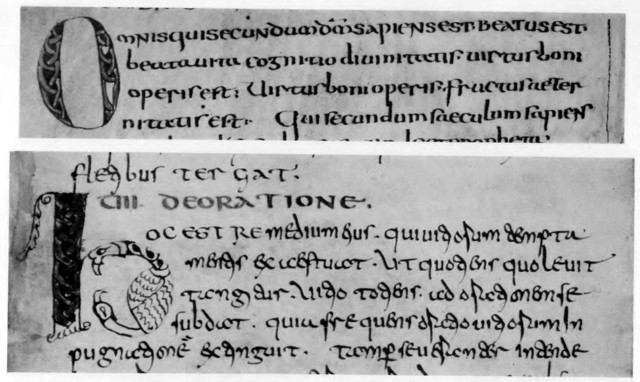 OmnisquisecundumdmsapiensestBeatusest
beatauita cognitio diuinitatis uirtus boni
operis est. Uirtus boni operis. fructus aeter
nitatis est. Qui secundum saeculum sapiens
fletibus tergat.
CIII. DEORATIONE.
hOC EST REmedium hius. qui uitiorum tempta
mentis extuat. Ut quotiens quoleuit
tangitur. uitio totiens. ad orationem se
subdat. quia frequens oratio uitiorum in
pugnationē extinguit. Tam perseueranter intende